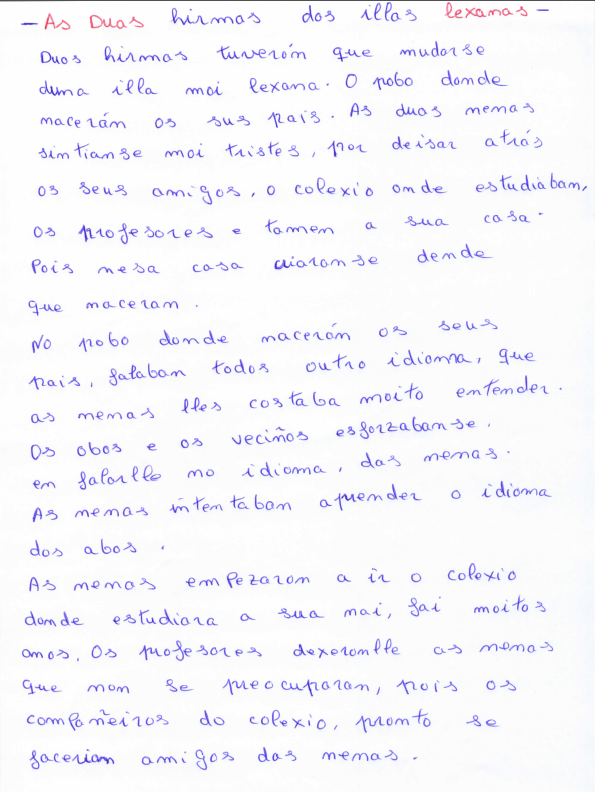 - As Duas hirmas dos illas lexanas -
Duos hirmas tuverón que mudarse
duna illa moi lexana. O pobo donde
nacerán os sus pais. As duas nenas
sintianse moi tristes, por deisar atrás
os seus amigos, o colexio onde estudiaban,
os profesores e tamen a sua casa.
Pois nesa casa criaronse dende
que naceran.
No pobo donde nacerón os seus
pais, falaban todos outro idioma, que
as nenas lles costaba moito entender.
Os obos e os veciños esforzabanse,
en falarlle no idioma, das nenas.
As nenas intentaban aprender o idioma
dos abos.
As nenas empezaron a ir o colexio
donde estudiara a sua mai, fai moitos
anos. Os profesores dexeronlle as nenas
que non se preocuparan, pois os
compañeiros do colexio, pronto se
facerian amigos das nenas.